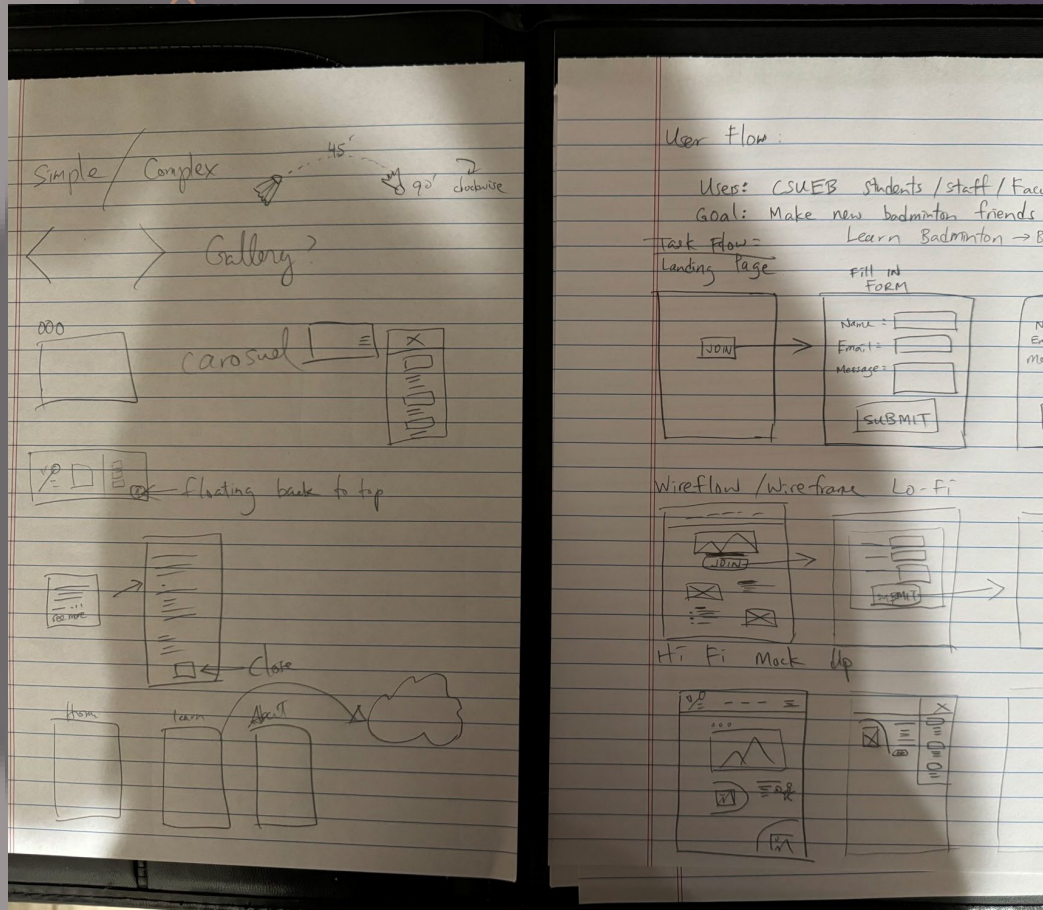 Simple / Complex
45°
90°
clockwise
Gallery?
carosuel
X
floating back to top
see more
Close
Home
learn
About
User Flow:
Users: CSUEB students / staff / Facu
Goal: Make new badminton friends
Learn Badminton → B
Task Flow =
Landing Page
Fill IN
FORM
JOIN
Name =
Email =
Message =
SUBMIT
N
Em
me
Wireflow / Wireframe Lo-Fi
JOIN
SUBMIT
Hi Fi Mock Up
X